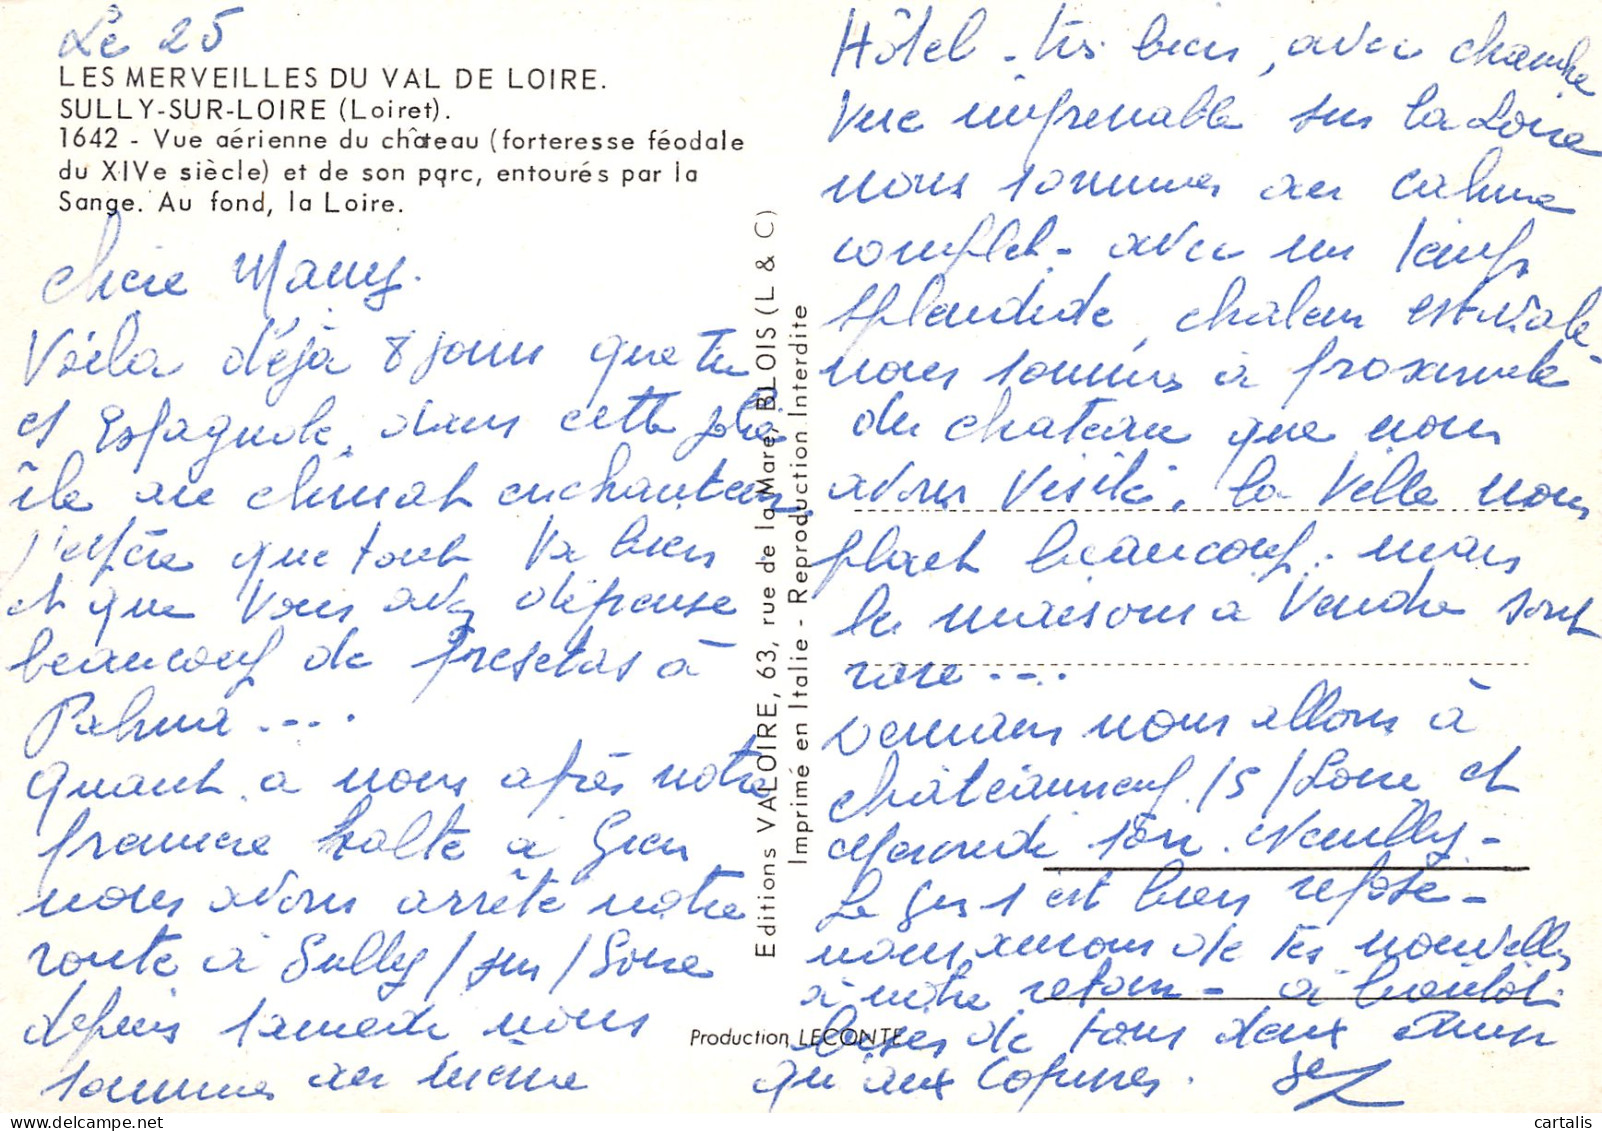 Le 25
LES MERVEILLES DU VAL DE LOIRE.
SULLY-SUR-LOIRE (Loiret).
1642 - Vue aérienne du château (forteresse féodale
du XIVe siècle) et de son parc, entourés par la
Sange. Au fond, la Loire.
Chère Mamy.
Voila déjà 8 jours que tu
es Espagnole, dans cette jolie
île au climat enchanteur,
j'espère que tout va bien
et que vous avez dépensé
beaucoup de pesetas à
Palma....
Quant à nous après notre
première halte à Gien
nous avons arrêté notre
route à Sully/sur/Loire
depuis samedi nous
sommes au même
Hôtel - très bien, avec chambre
vue imprenable sur la Loire
nous sommes au calme
complet - avec un temps
splendide, chaleur estivale -
nous sommes à proximité
du chateau que nous
avons visité, la ville nous
plait beaucoup. mais
les maisons à vendre sont
rare....
Demain nous allons à
Châteauneuf/s/Loire et
soir Neuilly -
Le est bien reposé -
nous aurons de tes nouvelles
à notre retour - à bientôt
bises de tous deux ainsi
qu'aux Copines.
Editions VALOIRE, 63, rue de la Mare, BLOIS (L & C)
Imprimé en Italie - Reproduction Interdite
Production LECONTE
cartalis.com